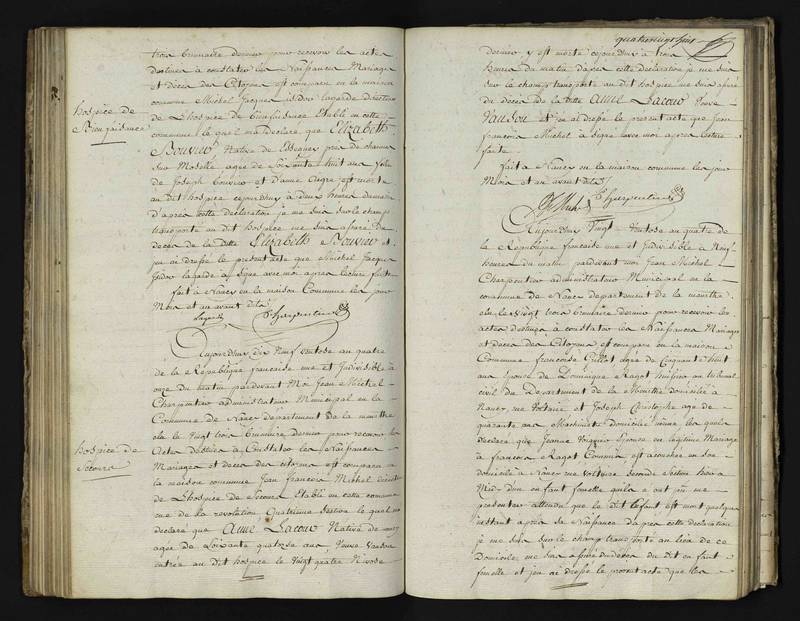 trois brumaire dernier pour recevoir les actes
destinés à constater les Naissances Mariages
et décès des Citoyens est comparu en la maison
commune Michel Jacques isidor lagarde directeur
de L'hospice de bienfaisance Etablie en cette
commune le quel m'a declaré que Elizabeth
Bouvier Native de Essegney près de charme
sur Moselle agée de Soixante huit ans fille
de Joseph Bouvier et d'anne est morte
au dit hospice cejourd'huy à deux heures du matin
d'après cette déclaration je me suis sur le champ
transporté au dit hospice me suis assuré du
décès de la ditte Elizabeth Bouvier et
j'en ai dressé le present acte que Michel Jacques
Isidor lagarde a signé avec moi apres lecture faite
fait à Nancy en la maison Commune les jour
Mois et an avant dits
Lagarde Charpentier
hospice de
Bienfaisance
Aujourd'huy dix Neuf ventose an quatre
de la République française une et Indivisible à
onze du matin pardevant Moi Jean Michel
Charpentier administrateur Municipal en la
Commune de Nancy département de la meurthe
élu le vingt trois brumaire dernier pour recevoir les
Actes destinés à Constater les Naissances
Mariages et décès des citoyens est comparu en
la maison commune Jean francois Michel
de L'hospice de Secours Etabli en cette commune
rue de la revolution quatrieme section le quel m'a
declaré que Anne Lacour Native de
agée de Soixante quatorze ans, Veuve Vaudou
entrée au dit hospice le vingt quatre Nivose
hospice de
Secours
dernier y est morte cejourd'huy à trois
heures du matin d'apres cette déclaration je me suis
sur le champ transporté au dit hospice me suis assuré
du décès de la ditte Anne Lacour Veuve
Vaudou et j'en ai dressé le present acte que Jean
françois Michel à signé avec moi apres lecture
faite
fait à Nancy en la maison commune les jour
Mois et an avant dits
Charpentier
Aujourd'huy Vingt Ventose an quatre de
la République française une et Indivisible à Neuf
heures du matin pardevant moi Jean Michel
Charpentier administrateur Municipal en la
commune de Nancy département de la meurthe
élu le vingt trois brumaire dernier pour recevoir les
actes destinés à constater les Naissances Mariages
et décès des Citoyens est comparu en la maison
Commune francoise agée de Cinquante huit
ans Epouse de Dominique Ragot huissier au tribunal
civil du Département de la Meurthe domiciliée à
Nancy rue Voltaire et Joseph Christophe agé de
quarante ans domicilié même les quels
declaré que Jeanne Epouse en légitime Mariage
à francois Ragot Commis est accouchée en son
domicile à Nancy rue Voltaire seconde Section hier à
Midi d'un enfant femelle quils ont
presenter attendu que le dit Enfant est mort quelques
instant apres sa Naissance d'apres cette déclaration
je me suis sur le champ transporté au lieu de ce
Domicile me suis assuré du décès du dit enfant
femelle et j'en ai dressé le present acte que les